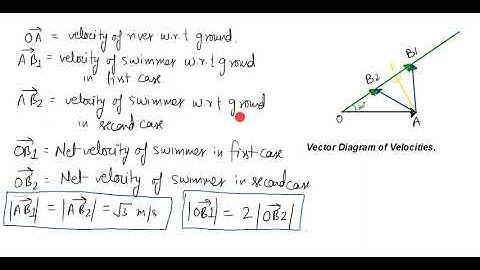 OA = velocity of river w.r.t ground.
AB1 = velocity of swimmer w.r.t ground
in first case
AB2 = velocity of swimmer w.r.t ground
in second case
OB1 = Net velocity of swimmer in first case
OB2 = Net velocity of swimmer in second case
|AB1| = |AB2| = √3 m/s
|OB1| = 2 |OB2|
B1
B2
O
A
Vector Diagram of Velocities.